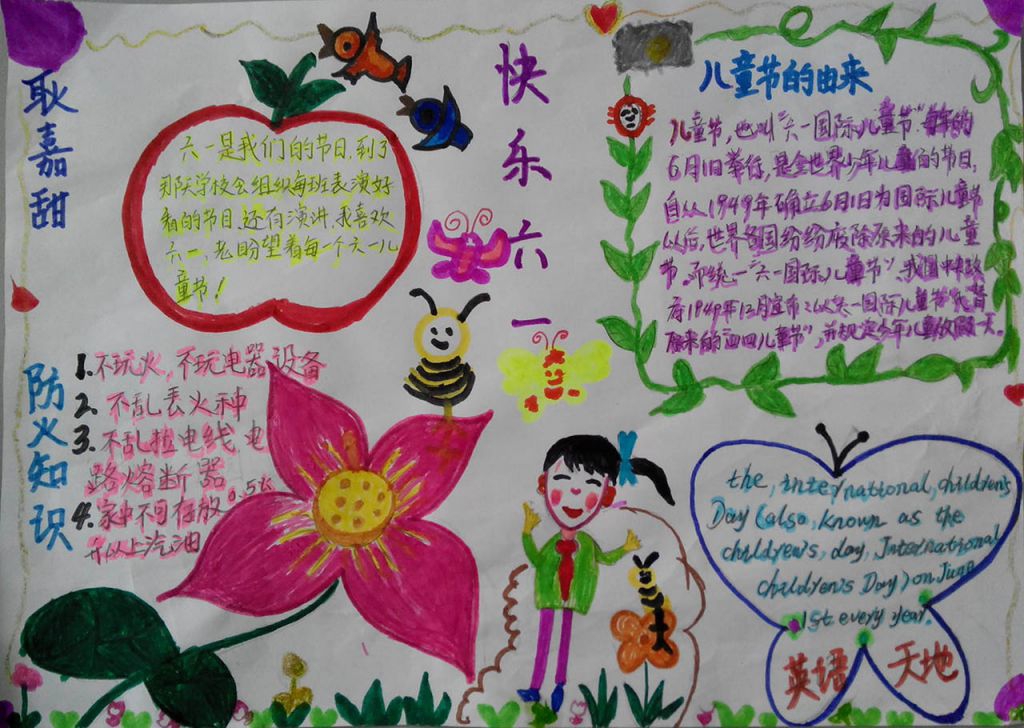 耿嘉甜
快乐六一
六一是我们的节日,到了
郑庆学校会组织每班表演好
看的节目,还有演讲,我喜欢
六一,老盼望着每一个六一儿
童节!
儿童节的由来
儿童节,也叫“六一国际儿童节”每年的
6月1日举行,是全世界少年儿童们的节日,
自从1949年确立6月1日为国际儿童节
以后,世界各国纷纷废除原来的儿童
节,而统一“六一国际儿童节”,我国中央政
府1949年12月宣布:以六一国际儿童节代替
原来的“四四儿童节”,并规定今年儿童放假一天。
防火知识
1.不玩火,不玩电器设备
2. 不乱丢火种
3. 不乱拉电线 电
路熔断器
4. 家中不可存放0.5长
升以上汽油
the, international, children's
Day (also, known as the
children's, day, International
children's Day) on June
1st every year.
英语 天地